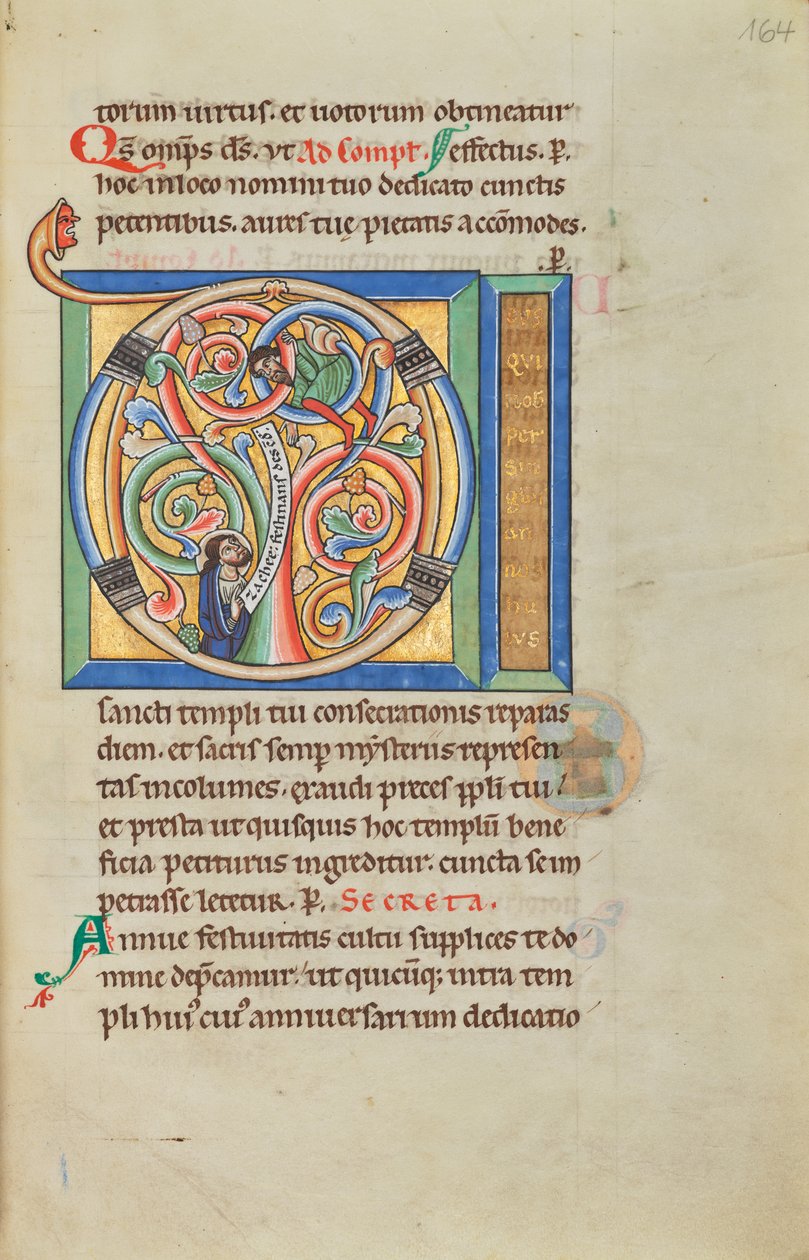 164
torum uirtus. et uotorum obtineatur
Qs̄ omp̄s d̄s. vt Ad Compt̄. effectus. P̶.
hoc in loco nomini tuo dedicato cunctis
petentibus. aures tuę pietatis accōmodes.
.P̶.
zachee; festinans desc̄d̄.
EVS
QVI
nob
per
sin
gulos
an
nos
hu
ivs
sancti templi tui consecrationis reparas
diem. et sacris semp̄ mẏsteriis represen
tas incolumes. exaudi preces ppl̄i tui!
et presta ut quisquis hoc templū bene
ficia petiturus ingreditur. cuncta se im
petrasse letetur. P̶. SECRETA.
Annue festiuitatis cultu supplices te do
mine dep̄camur. ut quicūq; intra tem
pli huiꝰ cuiꝰ anniuersarium dedicatio